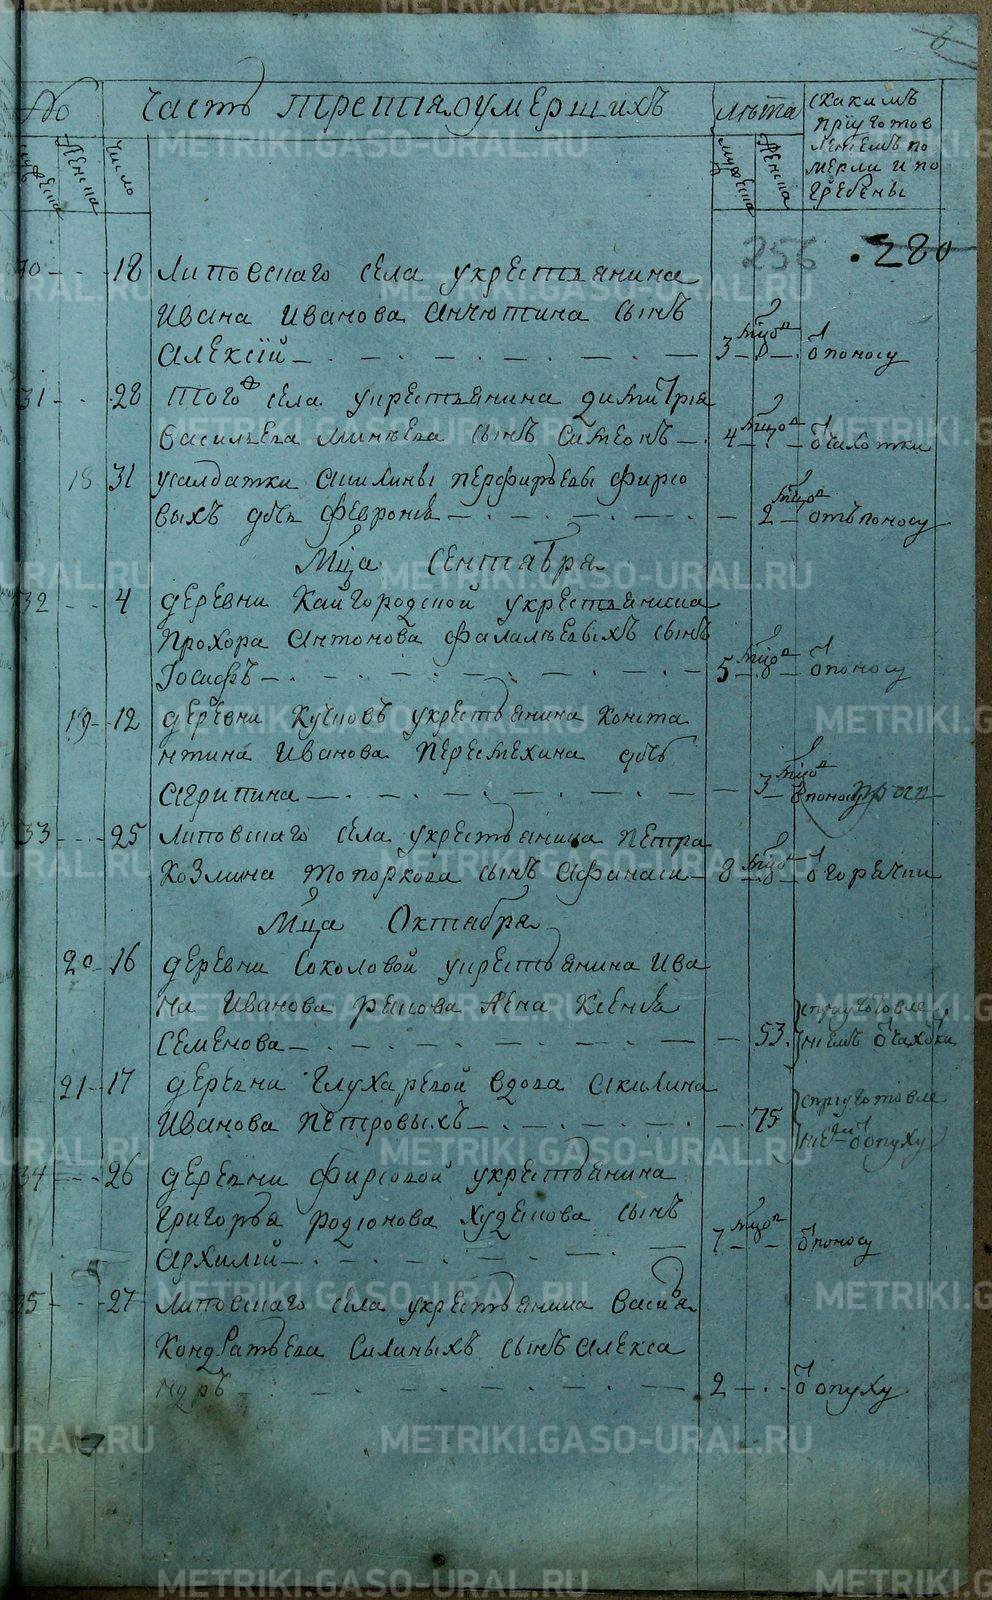 6
№ Часть третия о умершихъ лѣта скакимъ
приуготов
лениемъ по
мерли и по
гребены
мужеска женска число мужеска женска
256 280
30 - - - 18 Липовскаго села у крестьянина
Ивана Иванова Анчютина сынъ
Алексїй 3 мцов поносу
31 - - 28 Того ж села у крестьянина Димитрїя
Васильева Минѣева сынъ Симеонъ 4 мцов чахотки
18 31 у салдатки Акилины Перфирьевы Фирсо
выхъ дочь Феврония 2 мцов отъ поносу
Мца Сентабря
32 - - 4 деревни Кайгородской у крестьянина
Прохора Антонова Фалалѣевыхъ сынъ
Iосифъ 5 мцов поносу
19 - 12 деревни Кучковъ у крестьянина Конста
нтина Иванова Перемехина дочь
Агрипина 3 мцов поносу
33 - - - 25 Липовскаго села у крестьянина Петра
Козмина Топоркова сынъ Афанаси 8 мцов горячки
Мца Октабря
20 - 16 деревни Соколовой у крестьянина Ива
на Иванова жена Ксения
Семенова 53 сприуготовле
ниемъ чахотки
21 - 17 деревни Глухаревой вдова Акилина
Иванова Петровыхъ 75 сприуготовле
опуху
34 - - - 26 деревни Фирсовой у крестьянина
Григорья Родионова Худекова сынъ
Архипъ 7 мцов поносу
35 - - - 27 Липовскаго села у крестьянина Василья
Кондратьева Силиныхъ сынъ Алекса
ндръ 2 опуху
METRIKI.GASO-URAL.RU